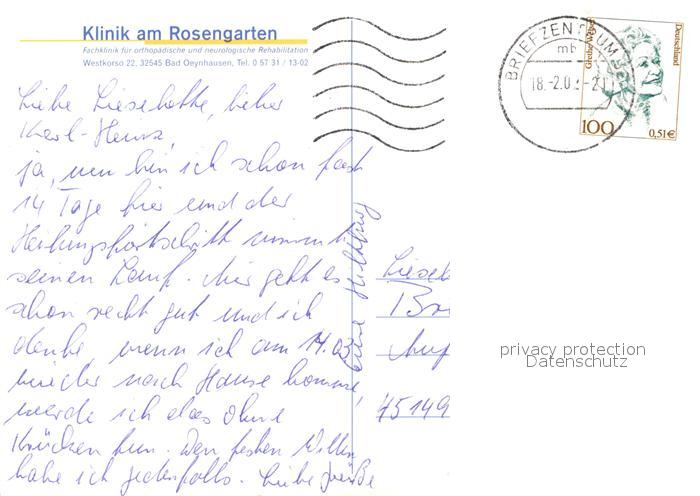 Klinik am Rosengarten
Fachklinik für orthopädische und neurologische Rehabilitation
Westkorso 22, 32545 Bad Oeynhausen, Tel. 0 57 31 / 13-02
Liebe Lieselotte, lieber
Karl-Heinz,
ja, nun bin ich schon fast
14 Tage hier und der
Heilungsfortschritt nimmt
seinen Lauf. Mir geht es
schon recht gut und ich
denke, wenn ich am 14.03
wieder nach Hause komme,
werde ich das ohne
Krücken tun. Den festen Willen
habe ich jedenfalls. Liebe Grüße
eure
BRIEFZENTRUM
mb
18.-2.0
Grethe Weiser
Deutschland
100
0,51€
Liesel
45149
privacy protection
Datenschutz